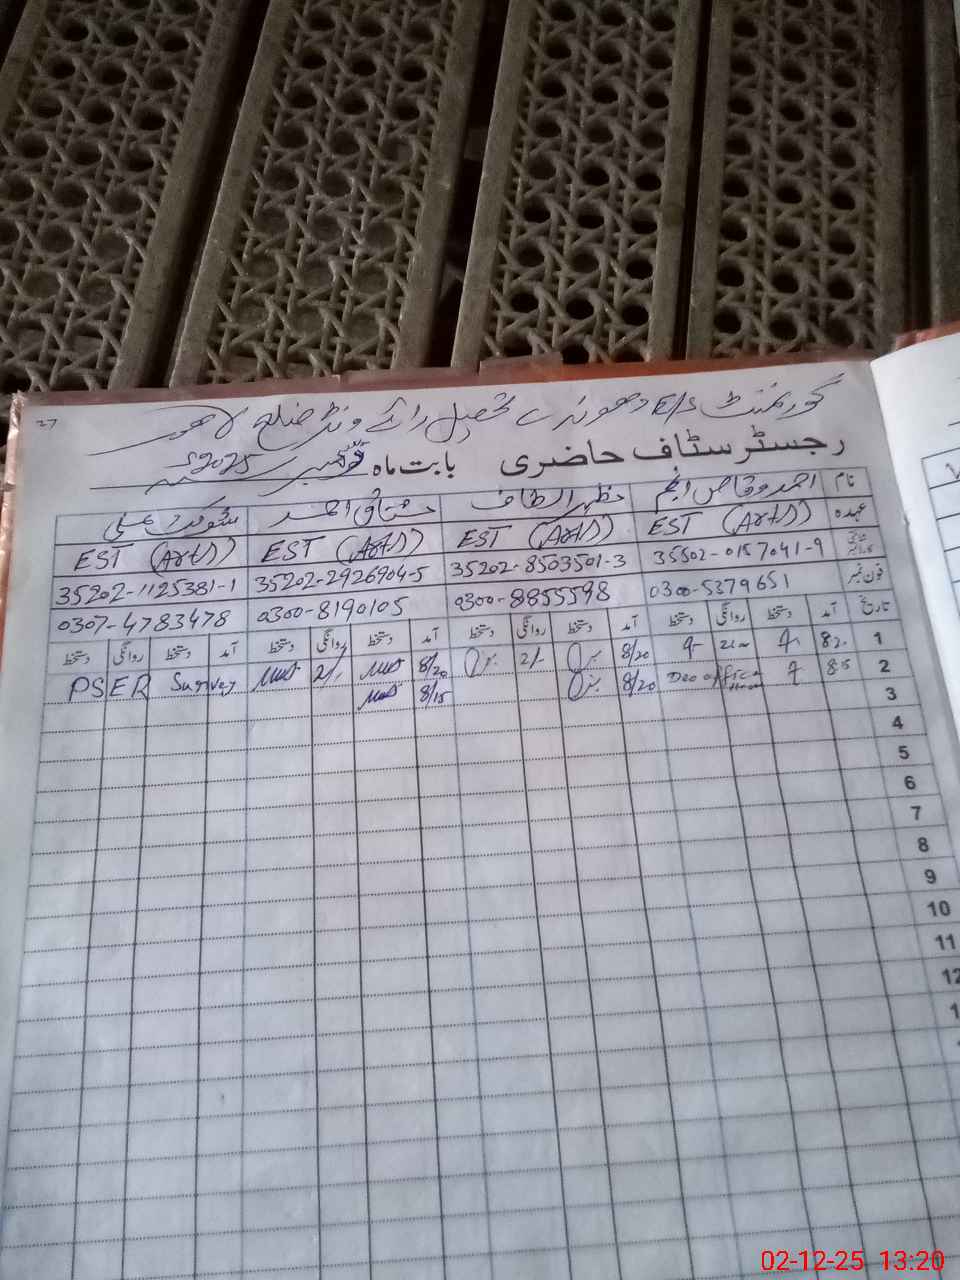 27
گورنمنٹ E/S دھونرے تحصیل رائے ونڈ ضلع لاہور
رجسٹر سٹاف حاضری بابت ماہ دسمبر 2025ء
نام احمد وقاص انجم مظہر الطاف مشتاق احمد شوکت علی
عہدہ EST (Arts) EST (Arts) EST (Arts) EST (Arts)
35502-0157041-9 35202-8503501-3 35202-2926904-5 35202-1125381-1
فون نمبر 0300-5379651 0300-8855598 0300-8190105 0307-4783478
تاریخ آمد دستخط روانگی دستخط آمد دستخط روانگی دستخط آمد دستخط روانگی دستخط آمد دستخط روانگی دستخط
1 820 8/20 2/- 8/20 2/- PSER Survey
2 815 Deo office 8/20 8/15
3
4
5
6
7
8
9
10
11
12
02-12-25 13:20